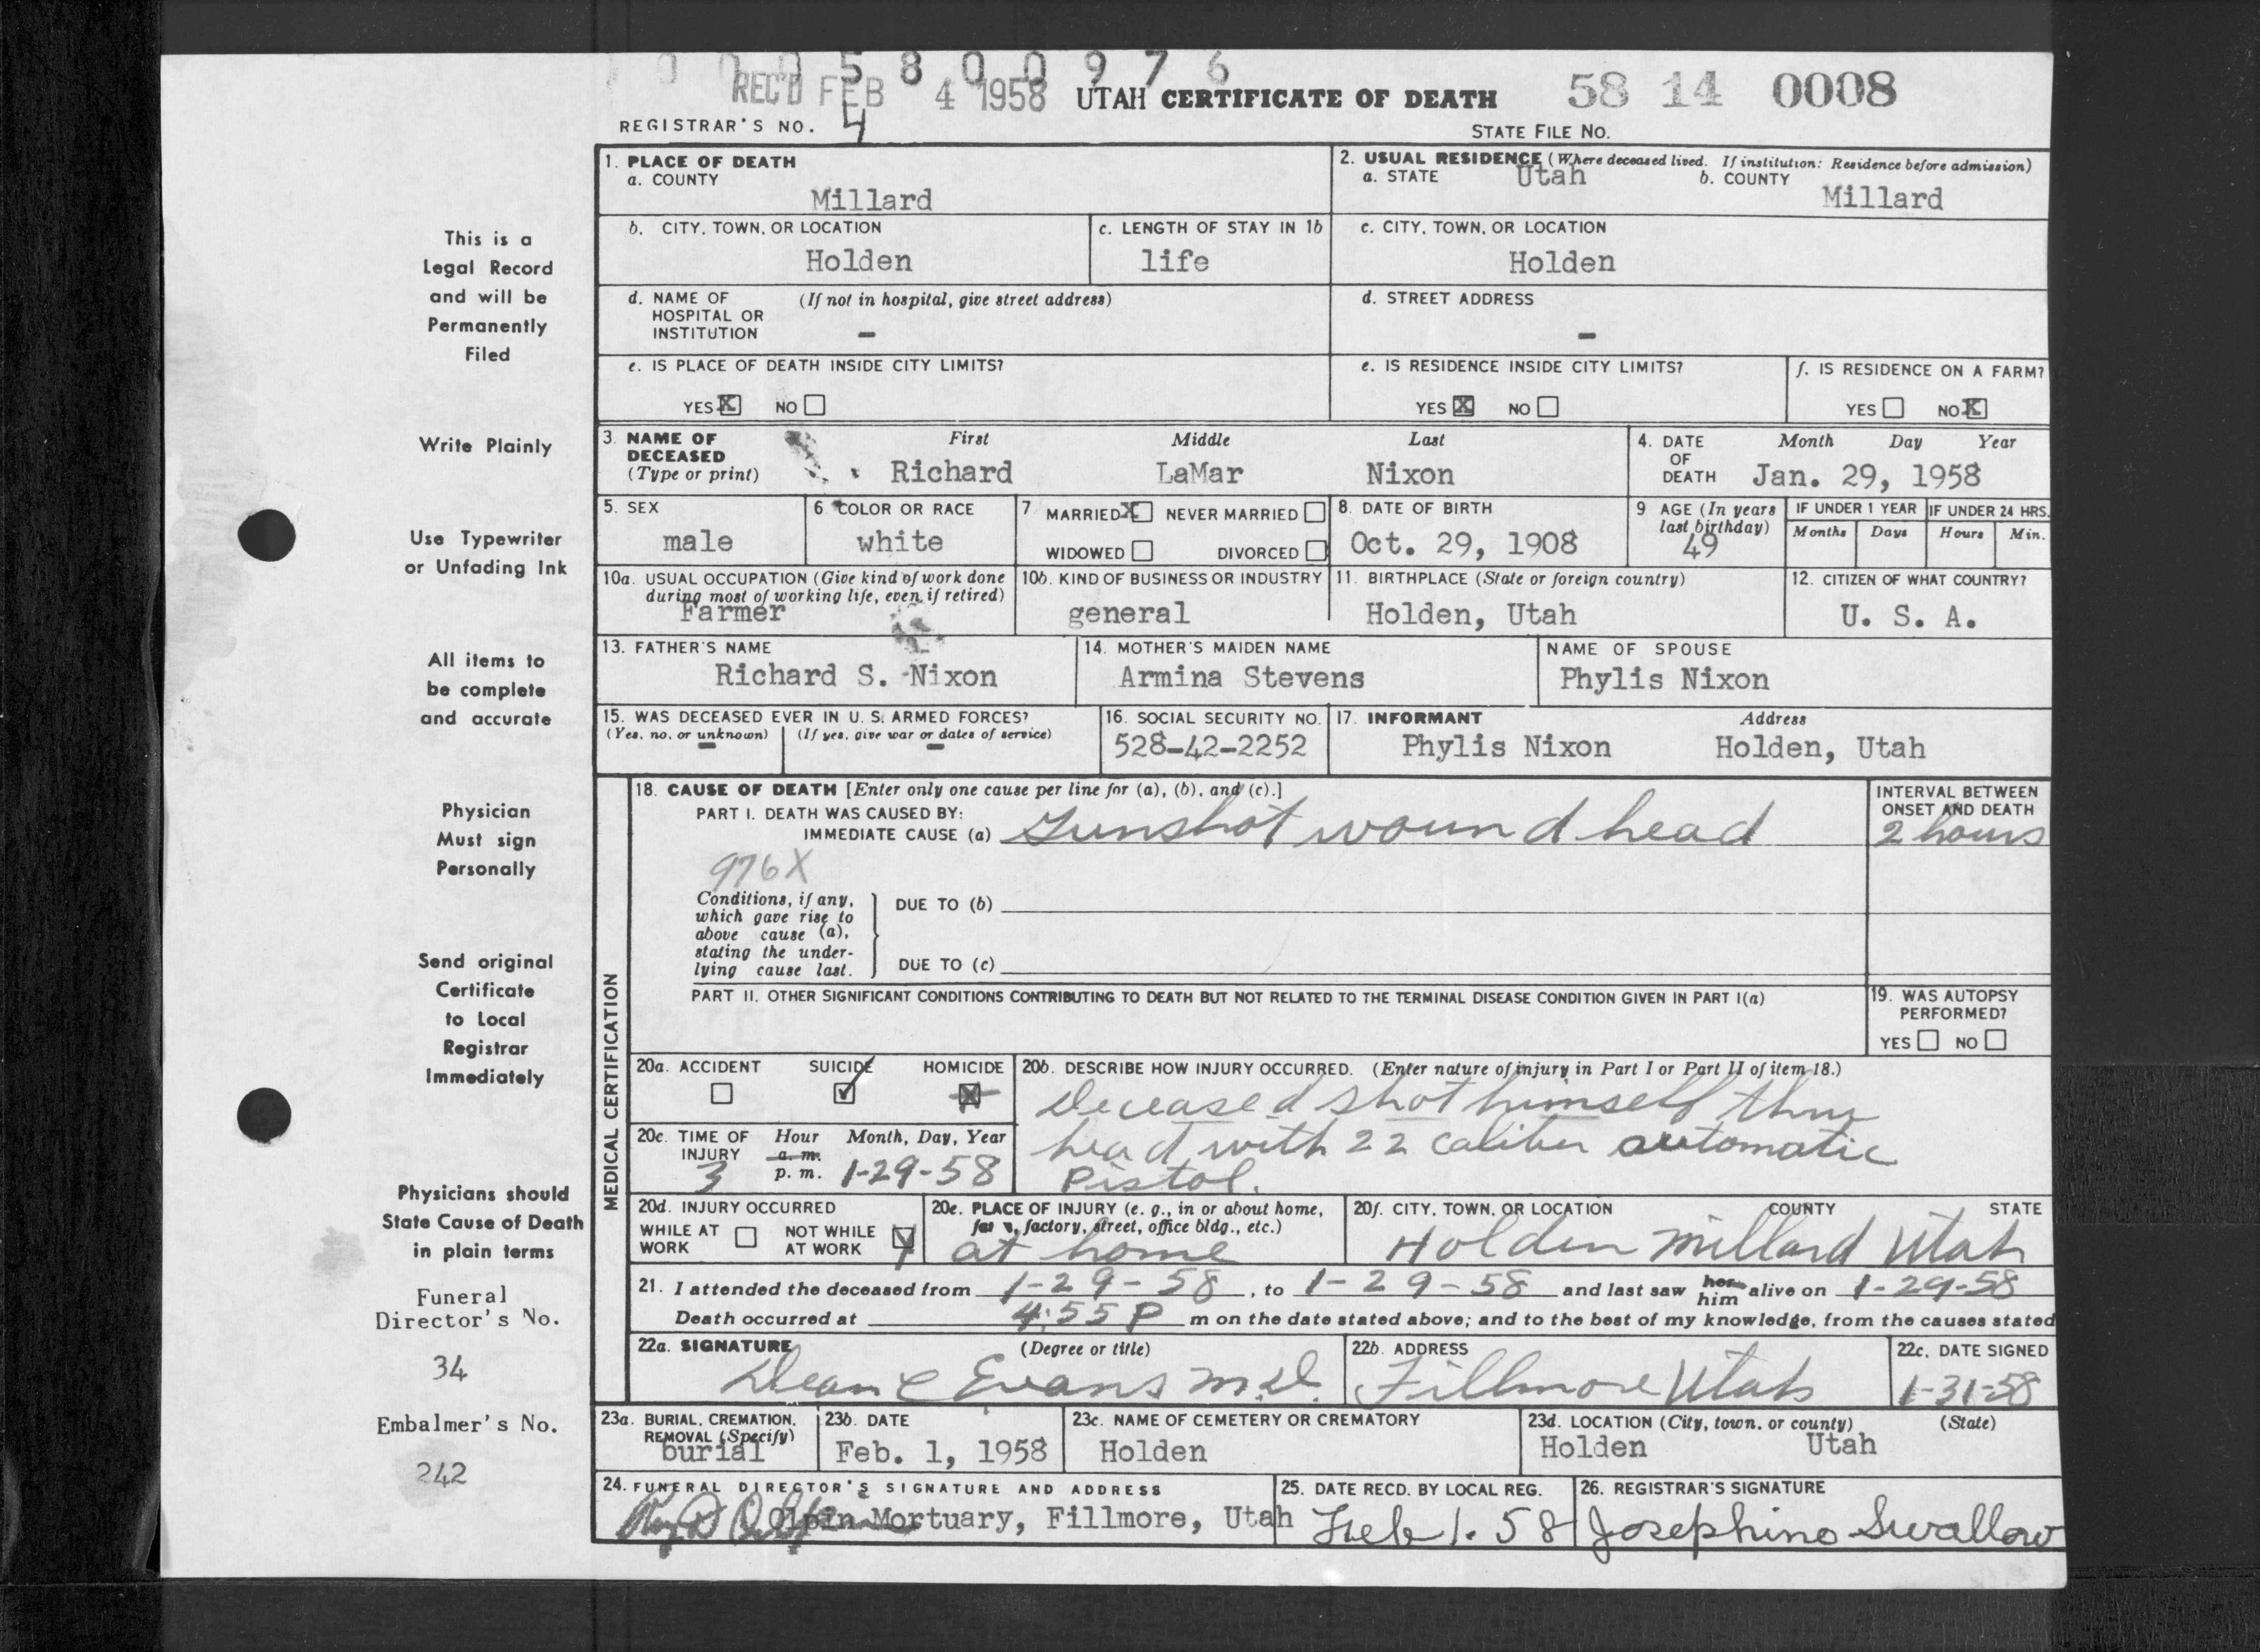 00058 00976
REC'D FEB 4 1958 UTAH CERTIFICATE OF DEATH 58 14 0008
REGISTRAR'S NO. 4 STATE FILE NO.
This is a
Legal Record
and will be
Permanently
Filed
Write Plainly
Use Typewriter
or Unfading Ink
All items to
be complete
and accurate
Physician
Must sign
Personally
Send original
Certificate
to Local
Registrar
Immediately
Physicians should
State Cause of Death
in plain terms
Funeral
Director's No.
34
Embalmer's No.
242
1. PLACE OF DEATH
a. COUNTY
Millard
2. USUAL RESIDENCE (Where deceased lived. If institution: Residence before admission)
a. STATE Utah b. COUNTY
Millard
b. CITY, TOWN, OR LOCATION
Holden
c. LENGTH OF STAY IN 1b
life
c. CITY, TOWN, OR LOCATION
Holden
d. NAME OF (If not in hospital, give street address)
HOSPITAL OR
INSTITUTION -
d. STREET ADDRESS
-
e. IS PLACE OF DEATH INSIDE CITY LIMITS?
YES X NO
e. IS RESIDENCE INSIDE CITY LIMITS?
YES X NO
f. IS RESIDENCE ON A FARM?
YES NO X
3. NAME OF DECEASED
(Type or print)
First Middle Last
Richard LaMar Nixon
4. DATE OF DEATH
Month Day Year
Jan. 29, 1958
5. SEX
male
6 COLOR OR RACE
white
7 MARRIED X NEVER MARRIED
WIDOWED DIVORCED
8. DATE OF BIRTH
Oct. 29, 1908
9 AGE (In years
last birthday)
49
IF UNDER 1 YEAR IF UNDER 24 HRS.
Months Days Hours Min.
10a. USUAL OCCUPATION (Give kind of work done
during most of working life, even if retired)
Farmer
10b. KIND OF BUSINESS OR INDUSTRY
general
11. BIRTHPLACE (State or foreign country)
Holden, Utah
12. CITIZEN OF WHAT COUNTRY?
U. S. A.
13. FATHER'S NAME
Richard S. Nixon
14. MOTHER'S MAIDEN NAME
Armina Stevens
NAME OF SPOUSE
Phylis Nixon
15. WAS DECEASED EVER IN U. S. ARMED FORCES?
(Yes, no, or unknown) (If yes, give war or dates of service)
- -
16. SOCIAL SECURITY NO.
528-42-2252
17. INFORMANT Address
Phylis Nixon Holden, Utah
MEDICAL CERTIFICATION
18. CAUSE OF DEATH [Enter only one cause per line for (a), (b), and (c).]
PART I. DEATH WAS CAUSED BY:
IMMEDIATE CAUSE (a) Gunshot wound head
INTERVAL BETWEEN
ONSET AND DEATH
2 hours
976X
Conditions, if any,
which gave rise to
above cause (a),
stating the under-
lying cause last.
DUE TO (b)
DUE TO (c)
PART II. OTHER SIGNIFICANT CONDITIONS CONTRIBUTING TO DEATH BUT NOT RELATED TO THE TERMINAL DISEASE CONDITION GIVEN IN PART I(a)
19. WAS AUTOPSY
PERFORMED?
YES NO
20a. ACCIDENT SUICIDE HOMICIDE
20b. DESCRIBE HOW INJURY OCCURRED. (Enter nature of injury in Part I or Part II of item 18.)
Deceased shot himself thru
head with 22 caliber automatic
Pistol.
20c. TIME OF Hour Month, Day, Year
INJURY a. m.
3 p. m. 1-29-58
20d. INJURY OCCURRED
WHILE AT NOT WHILE
WORK AT WORK
20e. PLACE OF INJURY (e. g., in or about home,
factory, street, office bldg., etc.)
at home
20f. CITY, TOWN, OR LOCATION COUNTY STATE
Holden Millard Utah
21. I attended the deceased from 1-29-58, to 1-29-58 and last saw her him alive on 1-29-58
Death occurred at 4:55 P m on the date stated above; and to the best of my knowledge, from the causes stated
22a. SIGNATURE (Degree or title)
Dean C Evans M.D.
22b. ADDRESS
Fillmore Utah
22c. DATE SIGNED
1-31-58
23a. BURIAL, CREMATION,
REMOVAL (Specify)
burial
23b. DATE
Feb. 1, 1958
23c. NAME OF CEMETERY OR CREMATORY
Holden
23d. LOCATION (City, town, or county) (State)
Holden Utah
24. FUNERAL DIRECTOR'S SIGNATURE AND ADDRESS
Olpin Mortuary, Fillmore, Utah
25. DATE RECD. BY LOCAL REG.
Feb 1. 58
26. REGISTRAR'S SIGNATURE
Josephine Swallow